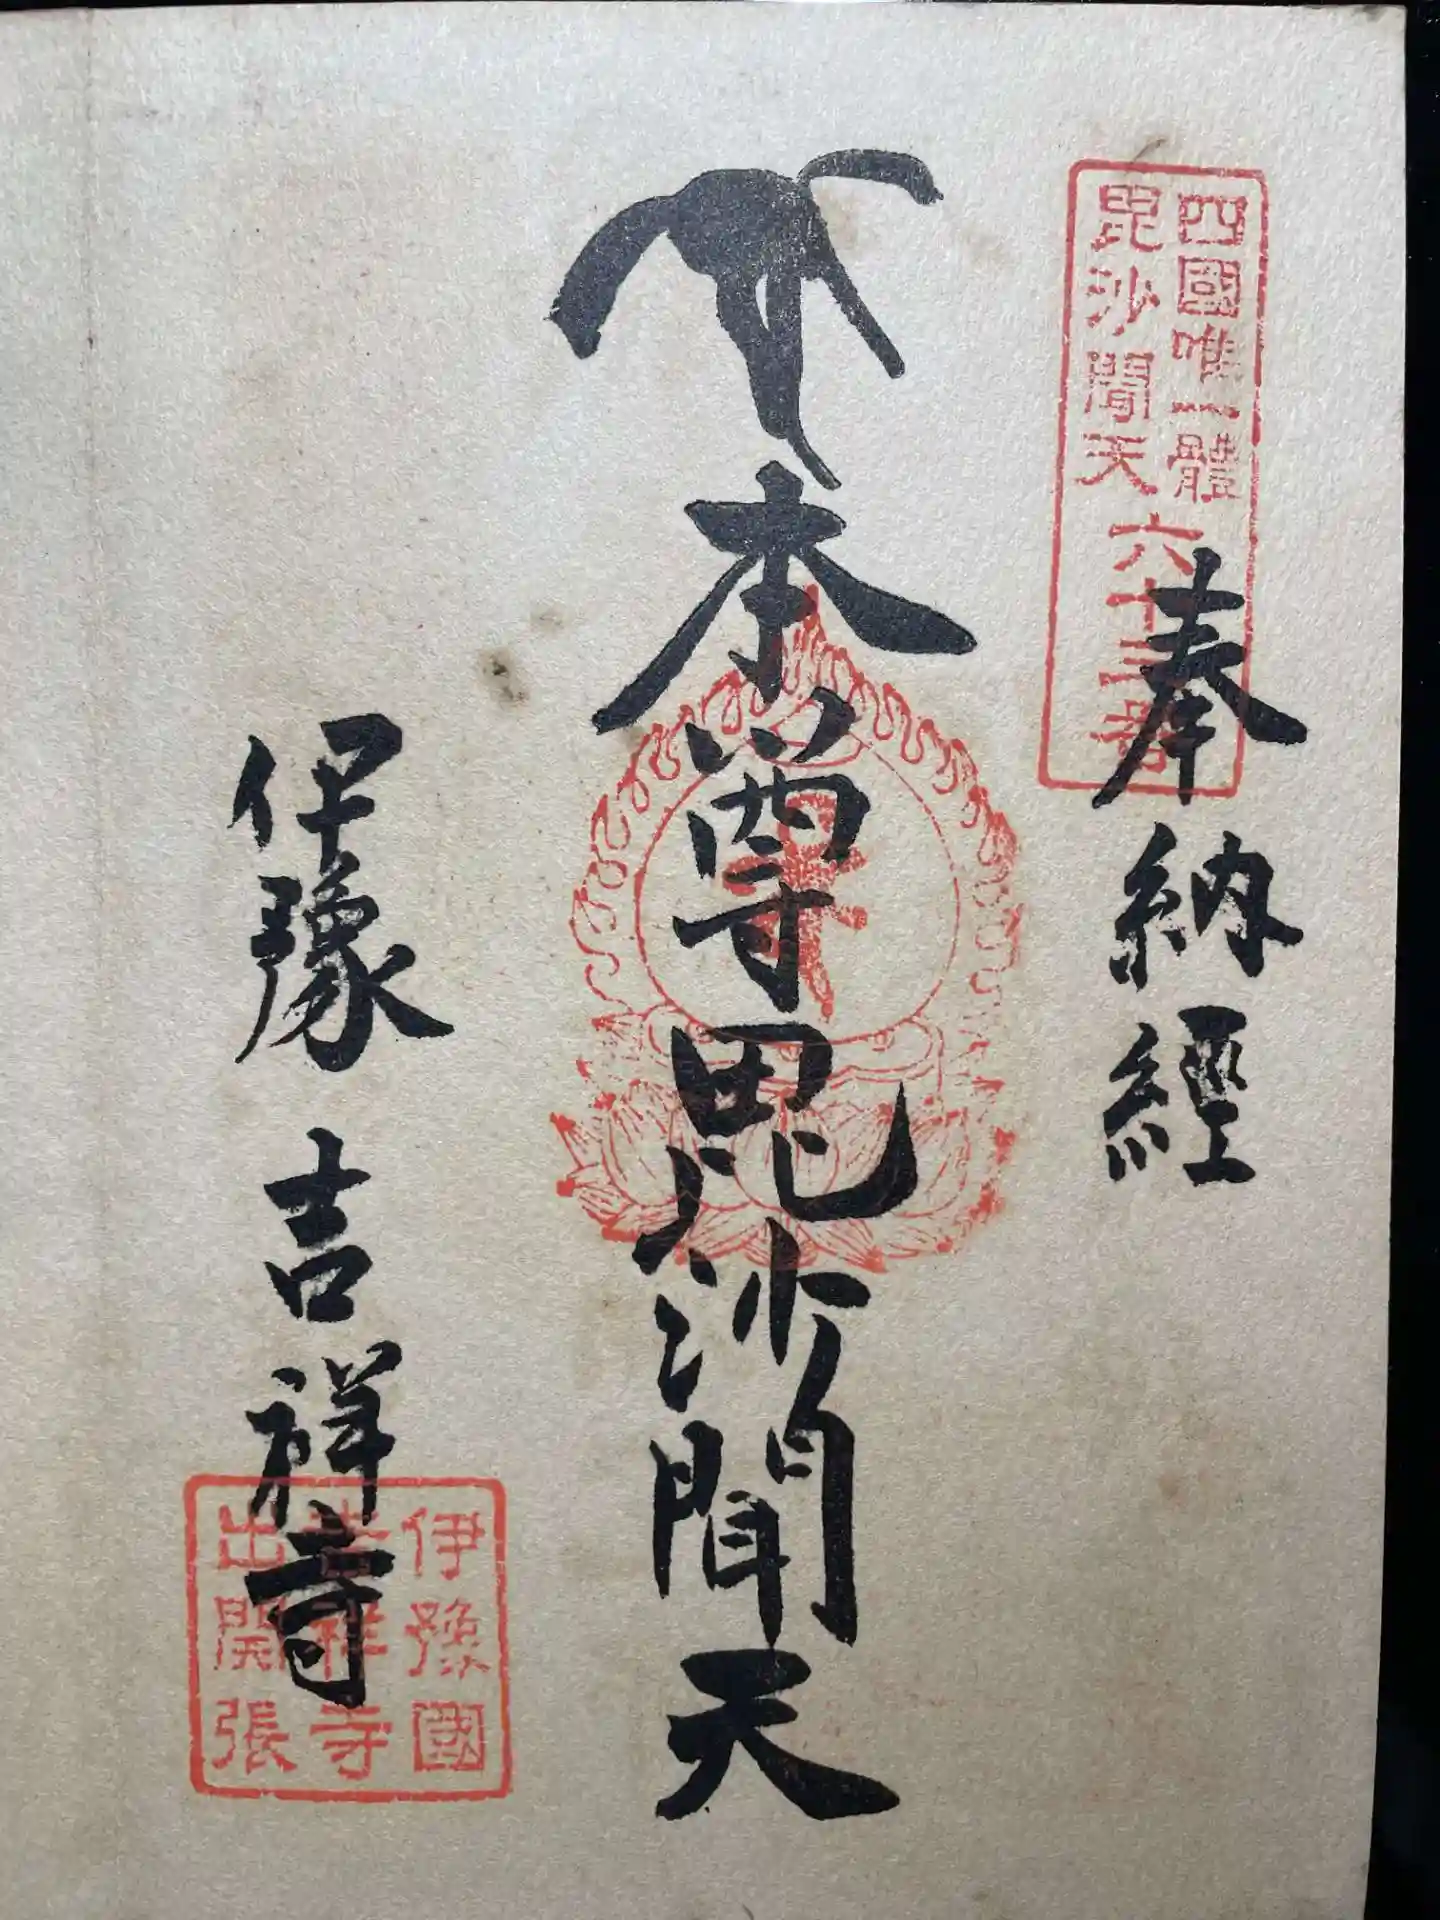 四國唯一體
毘沙聞天
六十三番
奉納經
本尊毘沙聞天
伊豫 吉祥寺
伊豫國
吉祥寺
出開張